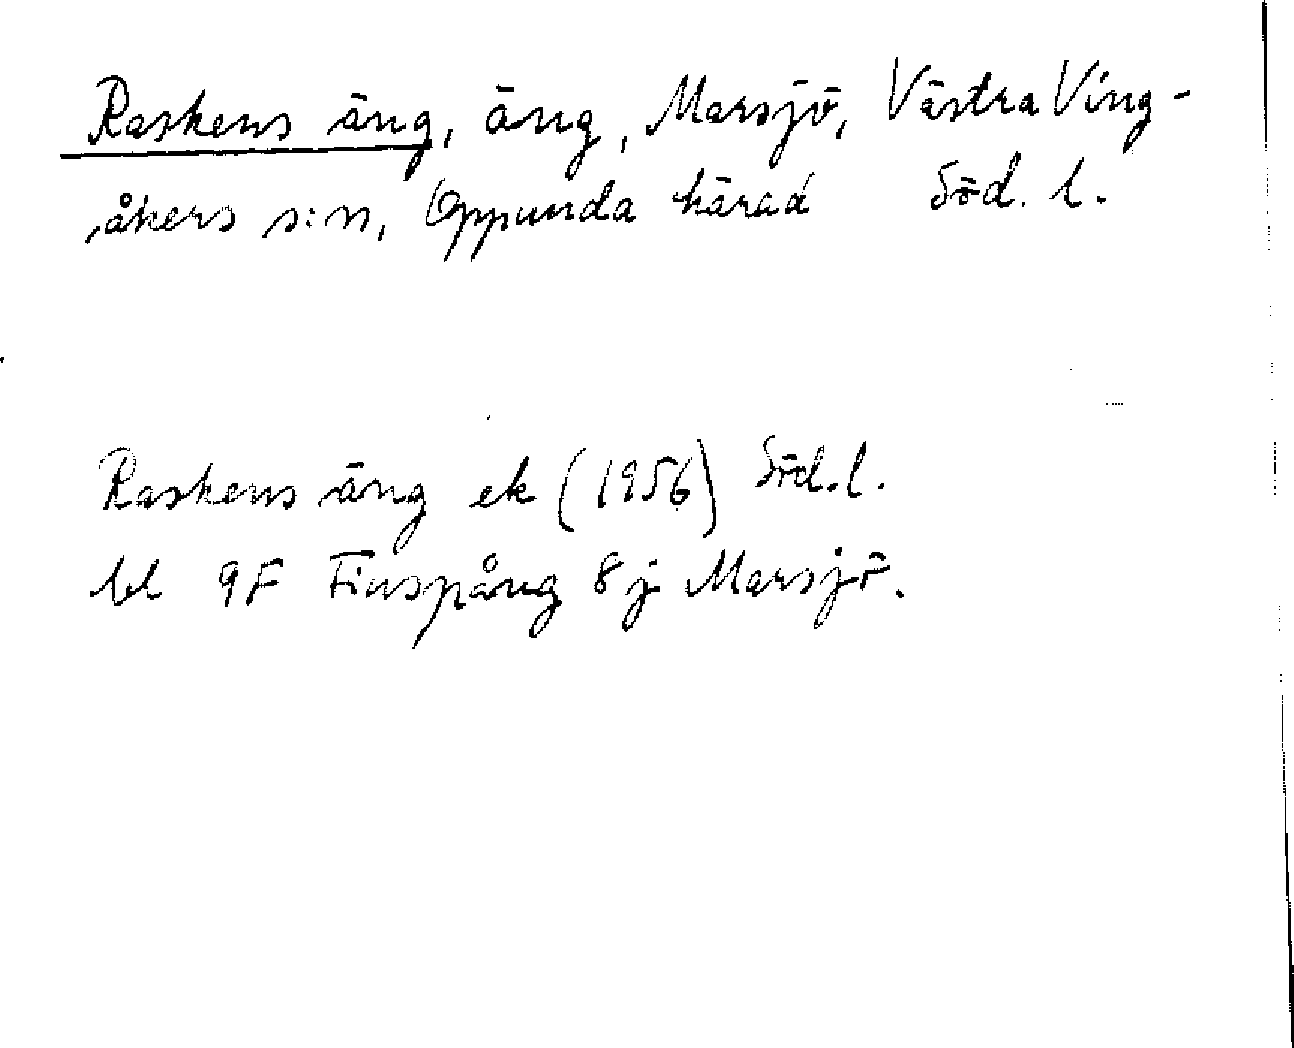 Raskens äng, äng, Marsjö, Västra Ving-
åkers s:n, Oppunda härad Söd. l.
Raskens äng ek (1956) Söd. l.
bl 9F Finspång 8j Marsjö.